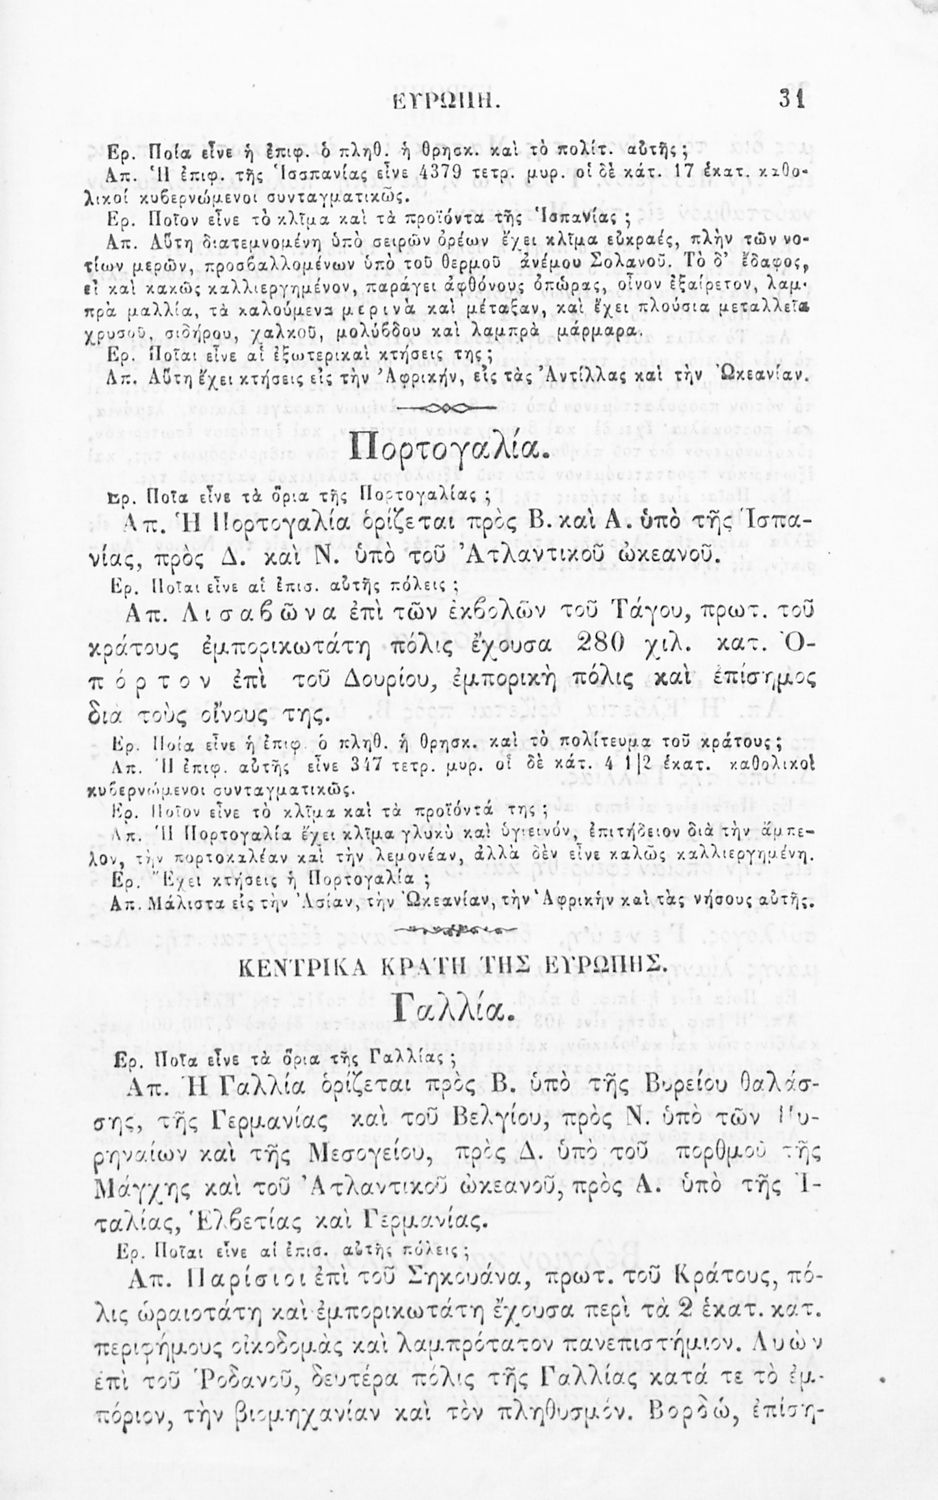 ΕΥΡΩΠΗ. 31
Ερ. Ποία εἶνε ἡ ἐπιφ. ὁ πληθ. ἡ θρησκ. καὶ τὸ πολίτ. αὐτῆς;
Απ. Ἡ ἐπιφ. τῆς Ἱσσπανίας εἶνε 4379 τετρ. μυρ. οἱ δὲ κάτ. 17 ἑκατ. καθο-
λικοὶ κυβερνώμενοι συνταγματικῶς.
Ερ. Ποῖον εἶνε τὸ κλῖμα καὶ τὰ προϊόντα τῆς Ἱσπανίας;
Απ. Αὕτη διατεμνομένη ὑπὸ σειρῶν ὀρέων ἔχει κλῖμα εὐκραές, πλὴν τῶν νο-
τίων μερῶν, προσβαλλομένων ὑπὸ τοῦ θερμοῦ ἀνέμου Σολανοῦ. Τὸ δ' ἔδαφος,
εἰ καὶ κακῶς καλλιεργημένον, παράγει ἀφθόνους ὀπώρας, οἶνον ἐξαίρετον, λαμ-
πρὰ μαλλία, τὰ καλούμενα μερινὰ καὶ μέταξαν, καὶ ἔχει πλούσια μεταλλεῖα
χρυσοῦ, σιδήρου, χαλκοῦ, μολύβδου καὶ λαμπρὰ μάρμαρα.
Ερ. Ποῖαι εἶνε αἱ ἐξωτερικαὶ κτήσεις της;
Απ. Αὕτη ἔχει κτήσεις εἰς τὴν Ἀφρικήν, εἰς τὰς Ἀντίλλας καὶ τὴν Ὠκεανίαν.
Πορτογαλία.
Ερ. Ποῖα εἶνε τὰ ὅρια τῆς Πορτογαλίας;
Απ. Ἡ Πορτογαλία ὁρίζεται πρὸς Β. καὶ Α. ὑπὸ τῆς Ἱσπα-
νίας, πρὸς Δ. καὶ Ν. ὑπὸ τοῦ Ἀτλαντικοῦ ὠκεανοῦ.
Ερ. Ποῖαι εἶνε αἱ ἐπισ. αὐτῆς πόλεις;
Απ. Λισαβῶνα ἐπὶ τῶν ἐκβολῶν τοῦ Τάγου, πρωτ. τοῦ
κράτους ἐμπορικωτάτη πόλις ἔχουσα 280 χιλ. κατ. Ὀ-
πόρτον ἐπὶ τοῦ Δουρίου, ἐμπορικὴ πόλις καὶ ἐπίσημος
διὰ τοὺς οἴνους της.
Ερ. Ποία εἶνε ἡ ἐπιφ. ὁ πληθ. ἡ θρησκ. καὶ τὸ πολίτευμα τοῦ κράτους;
Απ. Ἡ ἐπιφ. αὐτῆς εἶνε 347 τετρ. μυρ. οἱ δὲ κάτ. 4 1|2 ἑκατ. καθολικοὶ
κυβερνώμενοι συνταγματικῶς.
Ερ. Ποῖον εἶνε τὸ κλῖμα καὶ τὰ προϊόντά της;
Απ. Ἡ Πορτογαλία ἔχει κλῖμα γλυκὺ καὶ ὑγιεινόν, ἐπιτήδειον διὰ τὴν ἄμπε-
λον, τὴν πορτοκαλέαν καὶ τὴν λεμονέαν, ἀλλὰ δὲν εἶνε καλῶς καλλιεργημένη.
Ερ. Ἔχει κτήσεις ἡ Πορτογαλία;
Απ. Μάλιστα εἰς τὴν Ἀσίαν, τὴν Ὠκεανίαν, τὴν Ἀφρικὴν καὶ τὰς νήσους αὐτῆς.
ΚΕΝΤΡΙΚΑ ΚΡΑΤΗ ΤΗΣ ΕΥΡΩΠΗΣ.
Γαλλία.
Ερ. Ποῖα εἶνε τὰ ὅρια τῆς Γαλλίας;
Απ. Ἡ Γαλλία ὁρίζεται πρὸς Β. ὑπὸ τῆς Βορείου θαλάσ-
σης, τῆς Γερμανίας καὶ τοῦ Βελγίου, πρὸς Ν. ὑπὸ τῶν Πυ-
ρηναίων καὶ τῆς Μεσογείου, πρὸς Δ. ὑπὸ τοῦ πορθμοῦ τῆς
Μάγχης καὶ τοῦ Ἀτλαντικοῦ ὠκεανοῦ, πρὸς Α. ὑπὸ τῆς Ἰ-
ταλίας, Ἑλβετίας καὶ Γερμανίας.
Ερ. Ποῖαι εἶνε αἱ ἐπισ. αὐτῆς πόλεις;
Απ. Παρίσιοι ἐπὶ τοῦ Σηκουάνα, πρωτ. τοῦ Κράτους, πό-
λις ὡραιοτάτη καὶ ἐμπορικωτάτη ἔχουσα περὶ τὰ 2 ἑκατ. κατ.
περιφήμους οἰκοδομὰς καὶ λαμπρότατον πανεπιστήμιον. Λυὼν
ἐπὶ τοῦ Ῥοδανοῦ, δευτέρα πόλις τῆς Γαλλίας κατά τε τὸ ἐμ-
πόριον, τὴν βιομηχανίαν καὶ τὸν πληθυσμόν. Βορδώ, ἐπίση-